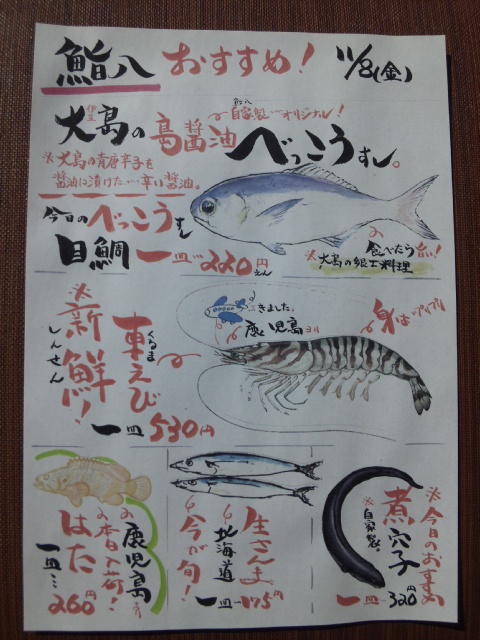 鮨八 おすすめ! 11/8(金)
伊豆
大島の島醤油べっこうすし。
鮨八
自家製…オリジナル!
※大島の青唐辛子を
醤油に漬けた…辛い醤油。
今日のべっこうすし
目鯛 一皿…220円
えん
食べたら旨い!
※大島の郷土料理
※新鮮!
しんせん
車えび
くるま
一皿530円
きました。
鹿児島ヨリ
身はプリプリ
鹿児島ヨリ
本日入荷!
はた
一皿…260円
生さんま
北海道
今が旬!
一皿…175円
※今日のおすすめ
煮穴子
※自家製。
一皿…320円